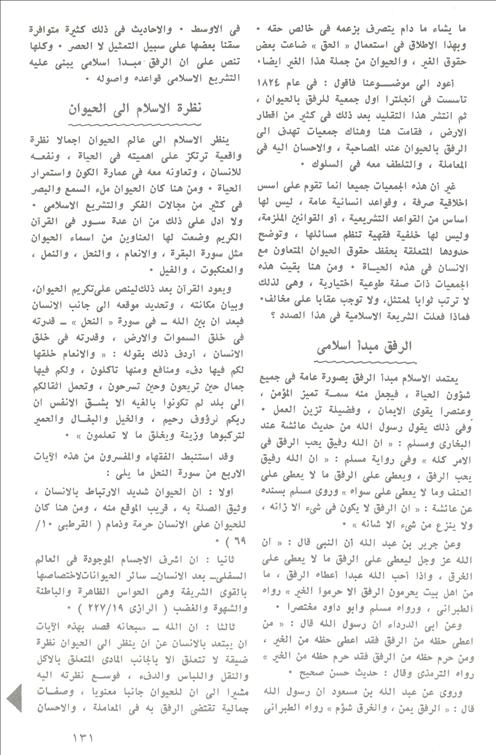 ما يشاء ما دام يتصرف بزعمه في خالص حقه •
وبهذا الاطلاق في استعمال « الحق » ضاعت بعض
حقوق الغير ، والحيوان من جملة هذا الغير ايضا•
أعود الى موضوعنا فأقول : في عام ١٨٢٤
تأسست في انجلترا اول جمعية للرفق بالحيوان ،
ثم انتشر هذا التقليد بعد ذلك في كثير من اقطار
الارض ، فقامت هنا وهناك جمعيات تهدف الى
الرفق بالحيوان عند المصاحبة ، والاحسان اليه في
المعاملة ، والتلطف معه في السلوك •
غير ان هذه الجمعيات جميعا انما تقوم على اسس
اخلاقية صرفة ، وقواعد انسانية عامة ، ليس لها
اساس من القواعد التشريعية ، أو القوانين الملزمة،
وليس لها خلفية فقهية تنظم مسائلها ، وتوضح
حدودها المتعلقة بحفظ حقوق الحيوان المتعاون مع
الانسان في هذه الحياة • ومن هنا بقيت هذه
الجمعيات ذات صفة طوعية اختيارية ، وهي لذلك
لا ترتب ثوابا لممتثل، ولا توجب عقابا على مخالف•
فماذا فعلت الشريعة الاسلامية في هذا الصدد ؟
الرفق مبدأ اسلامي
يعتمد الاسلام مبدأ الرفق بصورة عامة في جميع
شؤون الحياة ، فيجعل منه سمة تميز المؤمن ،
وعنصرا يقوي الايمان ، وفضيلة تزين العمل •
وفي ذلك يقول رسول الله من حديث عائشة عند
البخاري ومسلم : « ان الله رفيق يحب الرفق في
الامر كله » وفي رواية مسلم : « ان الله رفيق
يحب الرفق ، ويعطي على الرفق ما لا يعطي على
العنف وما لا يعطي على سواه » وروى مسلم بسنده
عن عائشة : « ان الرفق لا يكون في شيء الا زانه ،
ولا ينزع من شيء الا شانه »
وعن جرير بن عبد الله ان النبي قال : « ان
الله عز وجل ليعطي على الرفق ما لا يعطي على
الخرق ، واذا أحب الله عبدا أعطاه الرفق ، ما
من اهل بيت يحرمون الرفق الا حرموا الخير » رواه
الطبراني ، ورواه مسلم وابو داود مختصرا •
وعن ابي الدرداء ان رسول الله قال : « من
اعطي حظه من الرفق فقد اعطي حظه من الخير ،
ومن حرم حظه من الرفق فقد حرم حظه من الخير »
رواه الترمذي وقال : حديث حسن صحيح •
وروي عن عبد الله بن مسعود ان رسول الله
قال : « الرفق يمن ، والخرق شؤم » رواه الطبراني
في الاوسط • والاحاديث في ذلك كثيرة متوافرة
سقنا بعضها على سبيل التمثيل لا الحصر • وكلها
تنص على ان الرفق مبدأ اسلامي يبنى عليه
التشريع الاسلامي قواعده واصوله •
نظرة الاسلام الى الحيوان
ينظر الاسلام الى عالم الحيوان اجمالا نظرة
واقعية ترتكز على اهميته في الحياة ، ونفعه
للانسان ، وتعاونه معه في عمارة الكون واستمرار
الحياة • ومن هنا كان الحيوان ملء السمع والبصر
في كثير من مجالات الفكر والتشريع الاسلامي •
ولا ادل على ذلك من ان عدة سور في القرآن
الكريم وضعت لها العناوين من اسماء الحيوان
مثل سورة البقرة ، والانعام ، والنحل ، والنمل ،
والعنكبوت ، والفيل •
ويعود القرآن بعد ذلك لينص على تكريم الحيوان،
وبيان مكانته ، وتحديد موقعه الى جانب الانسان
فبعد ان بين الله ـ في سورة « النحل » ـ قدرته
في خلق السموات والارض ، وقدرته في خلق
الانسان ، أردف ذلك بقوله : « والانعام خلقها
لكم فيها دفء ومنافع ومنها تأكلون ، ولكم فيها
جمال حين تريحون وحين تسرحون ، وتحمل اثقالكم
الى بلد لم تكونوا بالغيه الا بشق الانفس ان
ربكم لرؤوف رحيم ، والخيل والبغال والحمير
لتركبوها وزينة ويخلق ما لا تعلمون » •
وقد استنبط الفقهاء والمفسرون من هذه الآيات
الاربع من سورة النحل ما يلي :
اولا : ان الحيوان شديد الارتباط بالانسان ،
وثيق الصلة به ، قريب الموقع منه ، ومن هنا كان
للحيوان على الانسان حرمة وذمام ( القرطبي ١٠/
٦٩ ) •
ثانيا : ان اشرف الاجسام الموجودة في العالم
السفلي ـ بعد الانسان ـ سائر الحيوانات لاختصاصها
بالقوى الشريفة وهي الحواس الظاهرة والباطنة
والشهوة والغضب ( الرازي ٢٢٧/١٩ ) •
ثالثا : ان الله ـ سبحانه قصد بهذه الآيات
ان يبتعد بالانسان عن ان ينظر الى الحيوان نظرة
ضيقة لا تتعلق الا بالجانب المادي المتعلق بالاكل
والنقل واللباس والدفء ، فوسع نظرته اليه
مشيرا الى ان للحيوان جانبا معنويا ، وصفات
جمالية تقتضي الرفق به في المعاملة ، والاحسان
١٣١